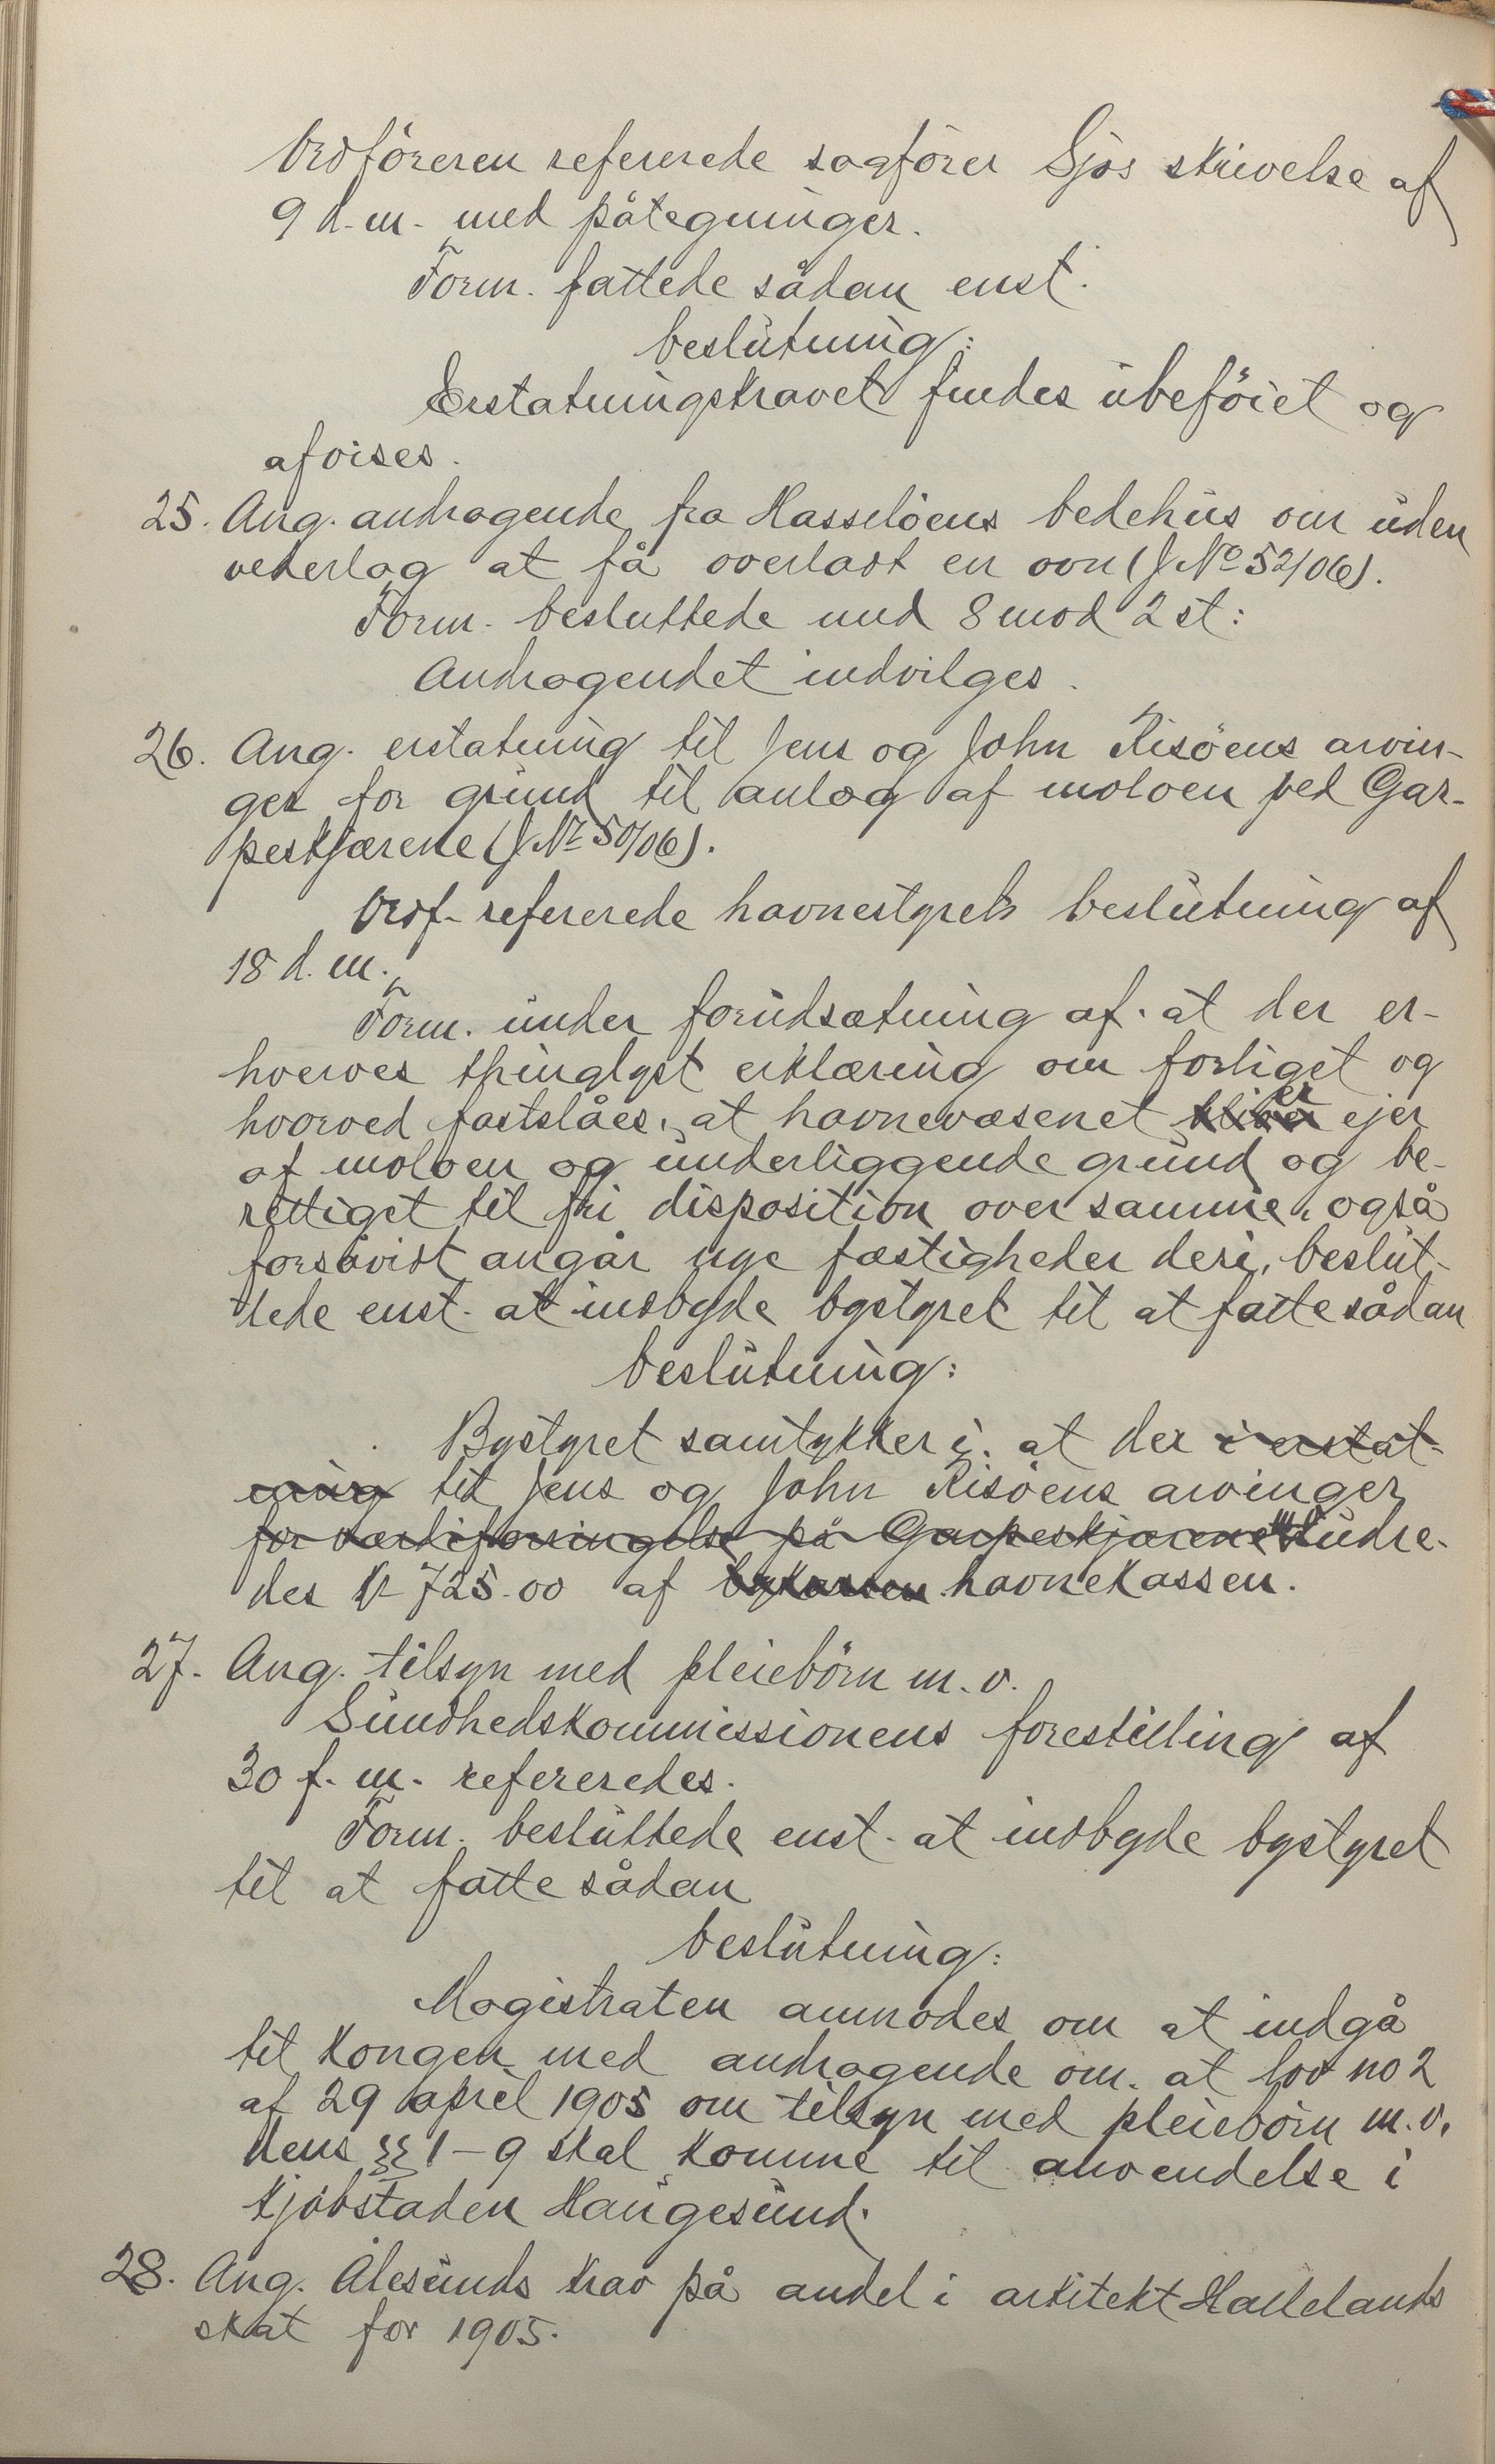 Ordføreren refererede sagfører Sjøs skrivelse af
9 d.m. med påtegninger.
Form. fattede sådan enst.
beslutning:
Erstatningskravet findes ubeføiet og
afvises.
25. Ang. andragende fra Hasseløens bedehus om uden
vederlag at få overladt en ovn (J. No 52/06).
Form. besluttede med 8 mod 2 st:
Andragendet indvilges.
26. Ang. erstatning til Jens og John Risøens arvin-
ger for grund til anlæg af moloen ved Gar-
peskjærene (J. No 50/06).
Ordf. refererede havnestyrets beslutning af
18 d.m.
Form. under forudsætning af, at der er-
hverves thinglyst erklæring om forliget og
hvorved fastslåes, at havnevæsenet bliver er ejer
af moloen og underliggende grund og be-
rettiget til fri disposition over samme, også
forsåvidt angår nye fæstigheder deri, beslut-
tede enst. at indbyde bystyret til at fatte sådan
beslutning:
Bystyret samtykker i, at der i erstat-
ning til Jens og John Risøens arvinger
for værdiforringelse på Garpeskjærene udre-
des kr 725.00 af bykassen havnekassen.
27. Ang. tilsyn med pleiebørn m.v.
Sundhedskommissionens forestilling af
30 f.m. refereredes.
Form. besluttede enst. at indbyde bystyret
til at fatte sådan
beslutning:
Magistraten anmodes om at indgå
til Kongen med andragende om, at lov no 2
af 29 april 1905 om tilsyn med pleiebørn m.v.
dens §§ 1-9 skal komme til anvendelse i
kjøbstaden Haugesund.
28. Ang. Ålesunds krav på andel i arkitekt Hallelands
skat for 1905.